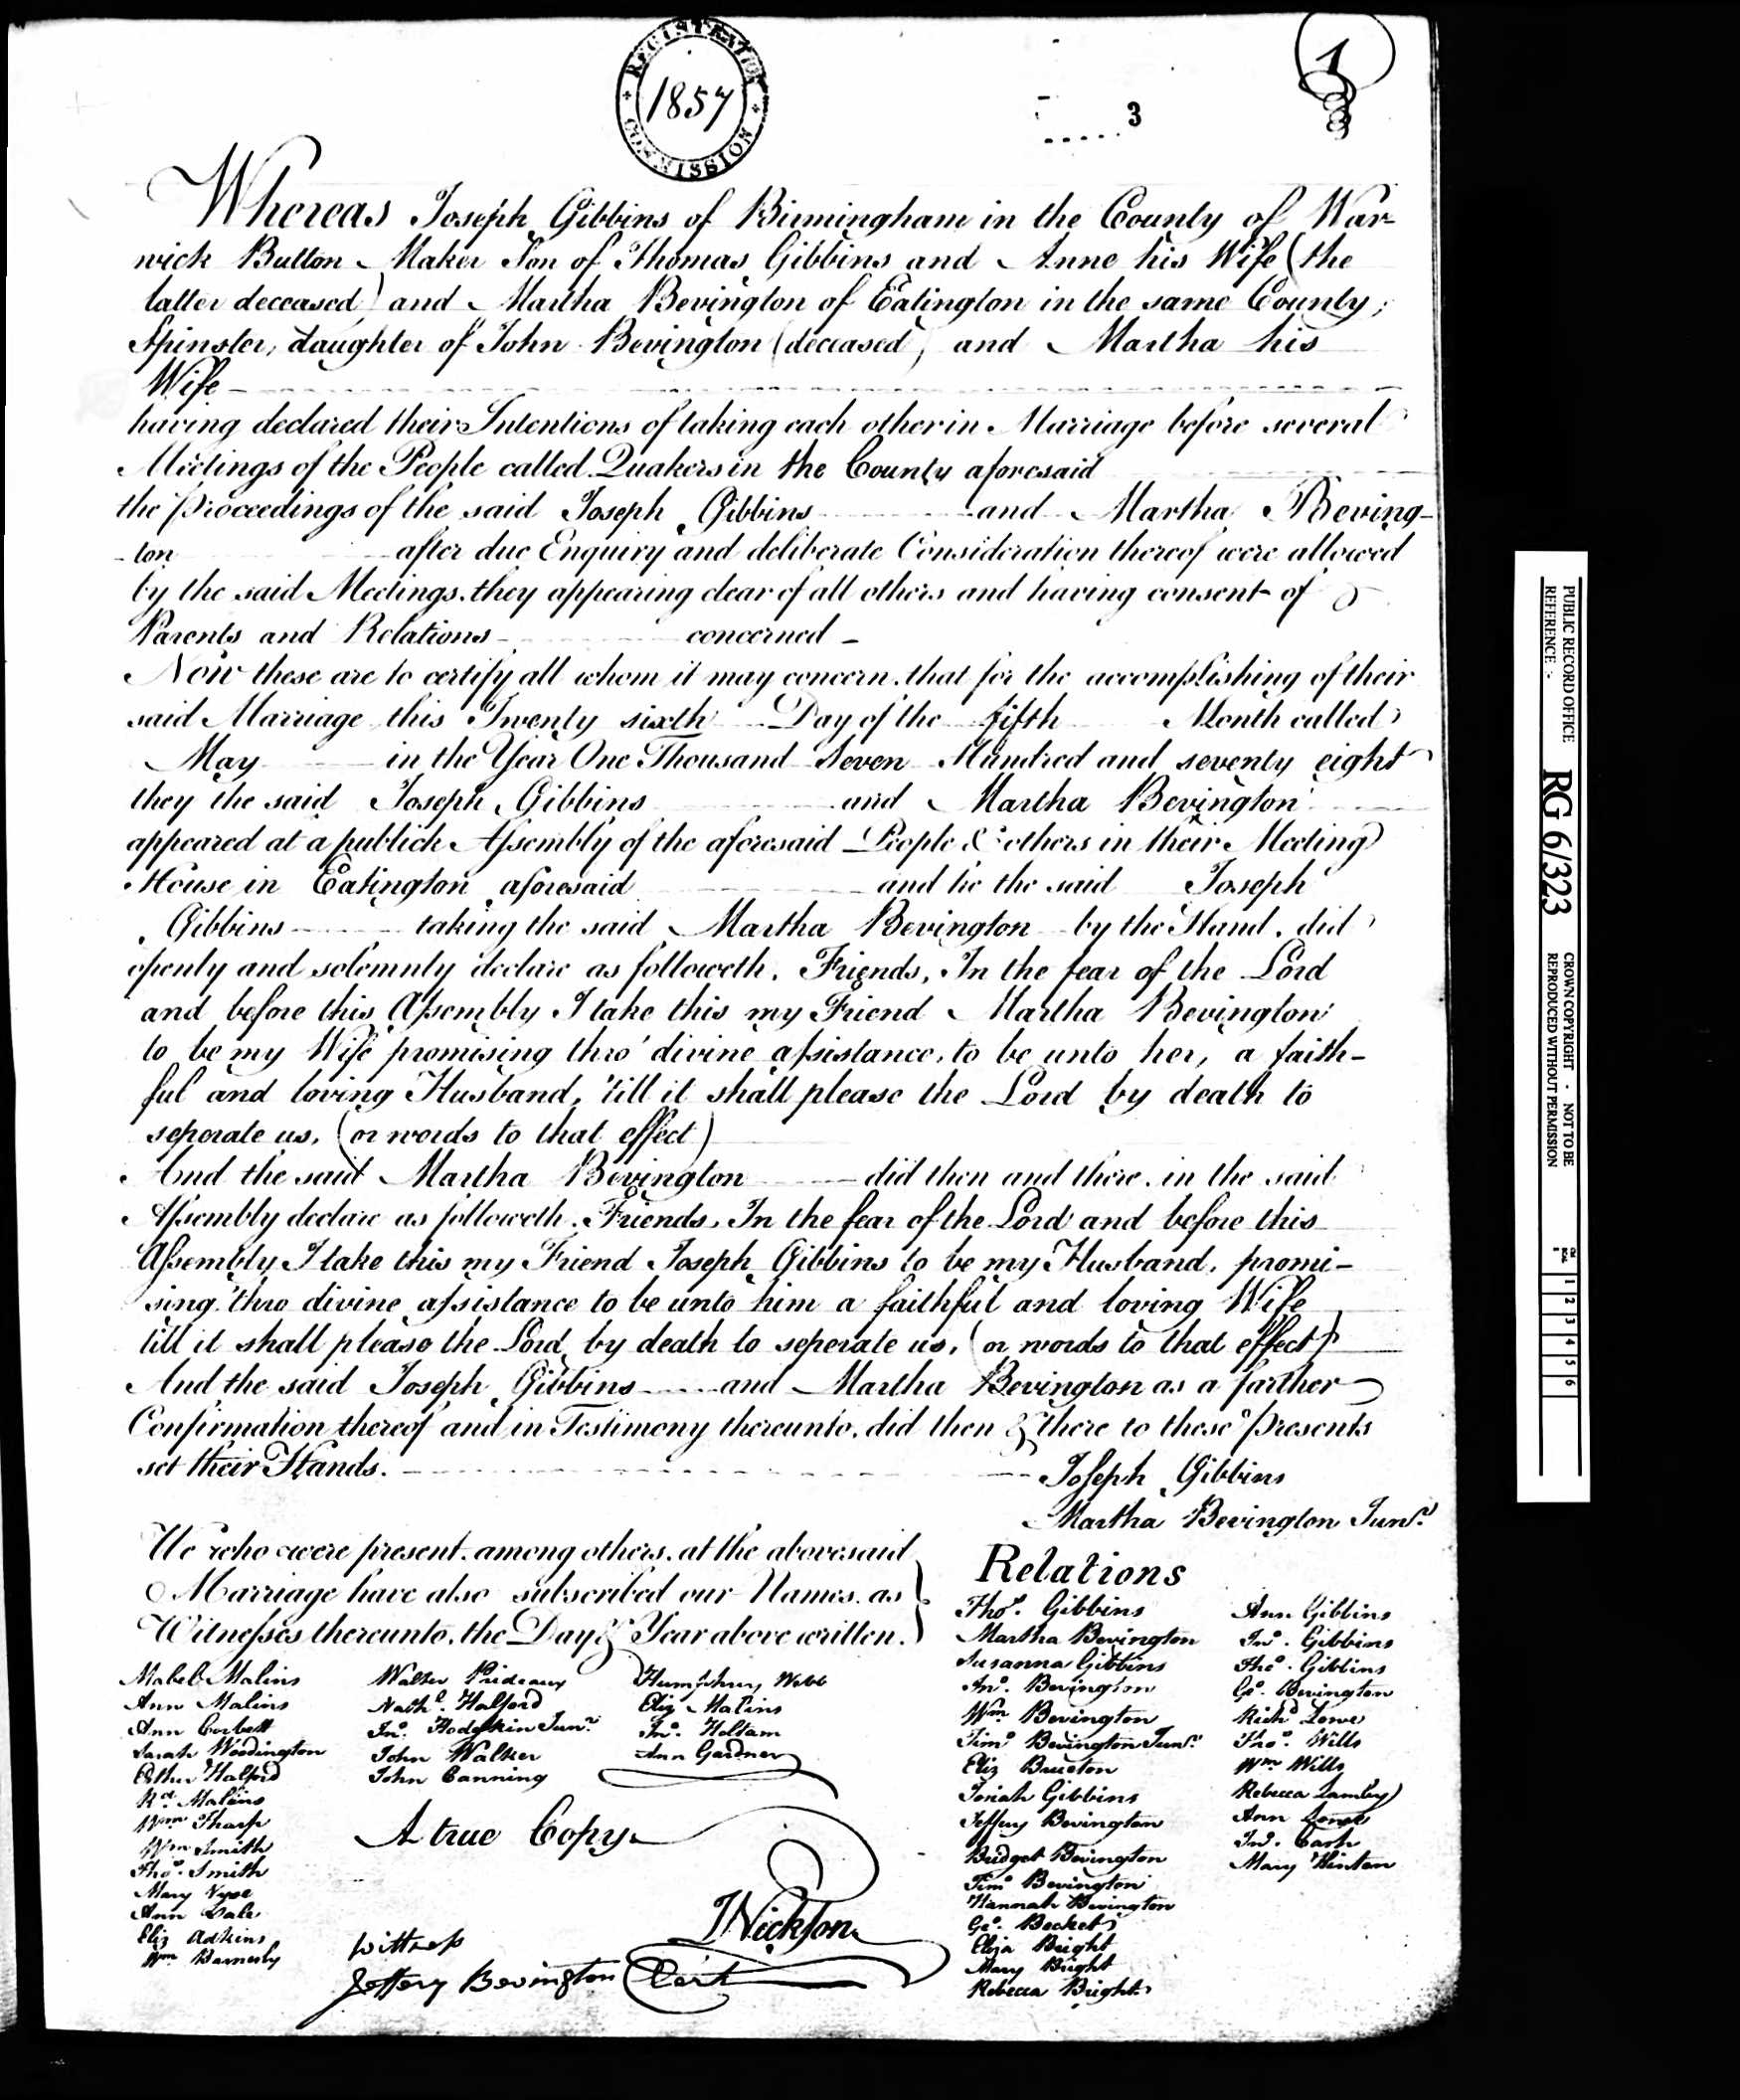 REGISTRATION
1857
COMMISSION
1
3
Whereas Joseph Gibbins of Birmingham in the County of War-
wick Button Maker Son of Thomas Gibbins and Anne his Wife (the
latter deceased) and Martha Bevington of Eatington in the same County,
Spinster, daughter of John Bevington (deceased) and Martha his
Wife
having declared their Intentions of taking each other in Marriage before several
Meetings of the People called Quakers in the County aforesaid
the Proceedings of the said Joseph Gibbins and Martha Beving-
-ton after due Enquiry and deliberate Consideration thereof were allowed
by the said Meetings, they appearing clear of all others and having consent of
Parents and Relations concerned
Now these are to certify all whom it may concern, that for the accomplishing of their
said Marriage this Twenty sixth Day of the fifth Month called
May in the Year One Thousand Seven Hundred and seventy eight
they the said Joseph Gibbins and Martha Bevington
appeared at a publick Assembly of the aforesaid People & others in their Meeting
House in Eatington aforesaid and he the said Joseph
Gibbins taking the said Martha Bevington by the Hand, did
openly and solemnly declare as followeth, Friends, In the fear of the Lord
and before this Assembly I take this my Friend Martha Bevington
to be my Wife promising thro' divine assistance, to be unto her, a faith-
ful and loving Husband, 'till it shall please the Lord by death to
seperate us, (or words to that effect)
And the said Martha Bevington did then and there, in the said
Assembly declare as followeth. Friends, In the fear of the Lord and before this
Assembly I take this my Friend Joseph Gibbins to be my Husband, promi-
sing thro divine assistance to be unto him a faithful and loving Wife
till it shall please the Lord by death to seperate us, (or words to that effect)
And the said Joseph Gibbins and Martha Bevington as a farther
Confirmation thereof and in Testimony thereunto, did then & there to these Presents
set their Hands.
Joseph Gibbins
Martha Bevington Junr.
We who were present, among others, at the abovesaid
Marriage have also subscribed our Names, as
Witnesses thereunto, the Day & Year above written.
Mabel Malins
Ann Malins
Ann Corbett
Sarah Woodington
Esther Halford
Rd. Malins
Wm Tharp
Wm Smith
Thos. Smith
Mary Nyse
Ann Gale
Eliz Adkins
Wm Barnesly
Walter Prideaux
Nathl. Halford
Jno. Hodgkin Junr.
John Walker
John Canning
Humphrey Webb
Eliz Malins
Jno. Holtam
Ann Gardner
A true Copy
Witness
Jeffery Bevington
J Nickson
Clerk
Relations
Thos. Gibbins
Martha Bevington
Susanna Gibbins
Jno. Bevington
Wm Bevington
Timo Bevington Junr.
Eliz Brueton
Josiah Gibbins
Jeffery Bevington
Bridget Bevington
Timo Bevington
Hannah Bevington
Geo. Becket
Eliza Bright
Mary Bright
Rebecca Bright
Ann Gibbins
Jno. Gibbins
Thos. Gibbins
Geo. Bevington
Richd Lowe
Thos. Wills
Wm Wills
Rebecca Lamley
Ann
Jno. Cash
Mary Hinton
PUBLIC RECORD OFFICE
REFERENCE :-
RG 6/323
CROWN COPYRIGHT - NOT TO BE
REPRODUCED WITHOUT PERMISSION
1 2 3 4 5 6